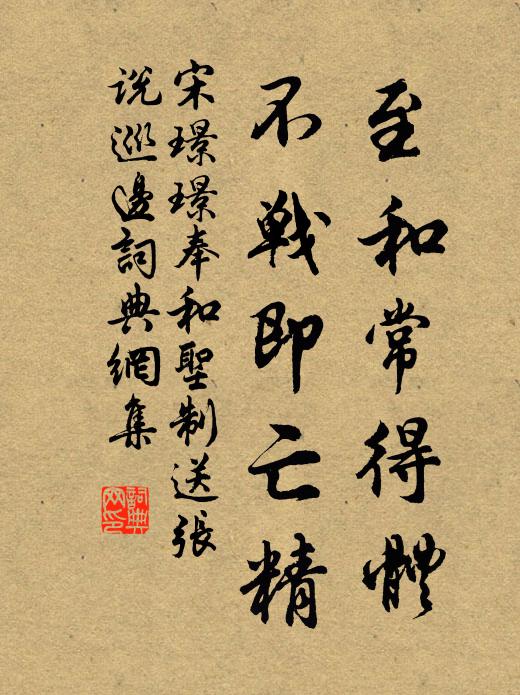 至和常得體
不戦即亡精
宋璟璟奉和聖制送張
說巡邊詞典網集
詞典
网印